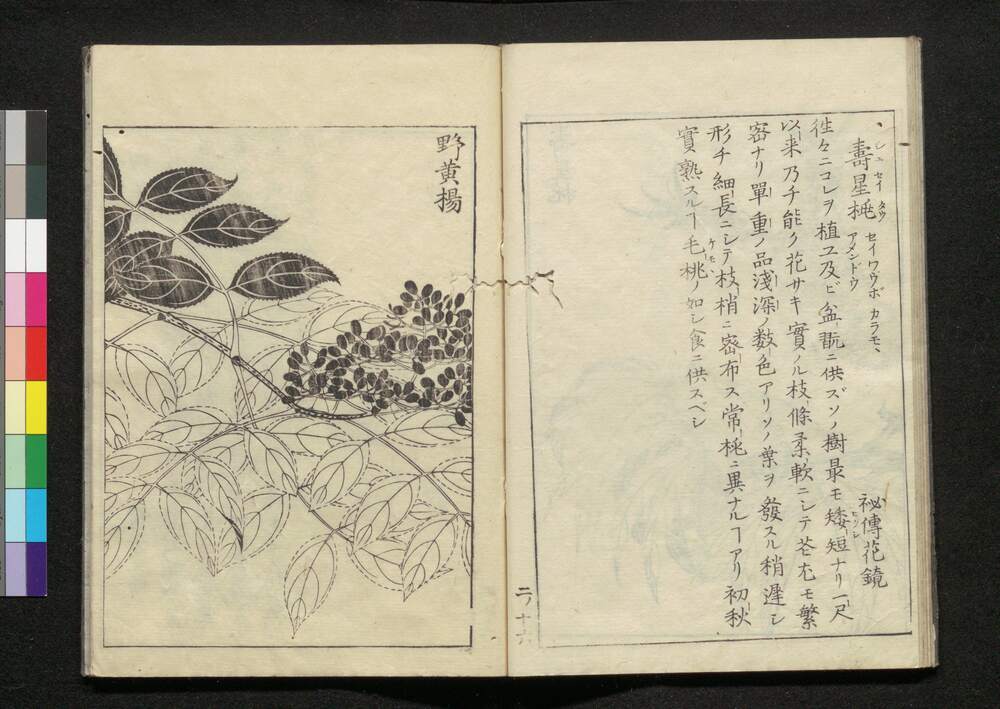 壽星桃 セイワウボ カラモヽ アメンドウ 祕傳花鏡
シユセイタウ
徃々ニコレヲ植ユ及ビ盆翫ニ供ズソノ樹最モ矮短ナリ一尺
以来乃チ能ク花サキ實ノル枝條柔軟ニシテ花尤モ繁
密ナリ單重ノ品淺深ノ数色アリソノ葉ヲ發スル稍遲シ
形チ細長ニシテ枝梢ニ密布ス常桃ニ異ナルヿアリ初秋
實熟スルヿ毛桃ノ如シ食ニ供スベシ
ケモヽ
野黄楊